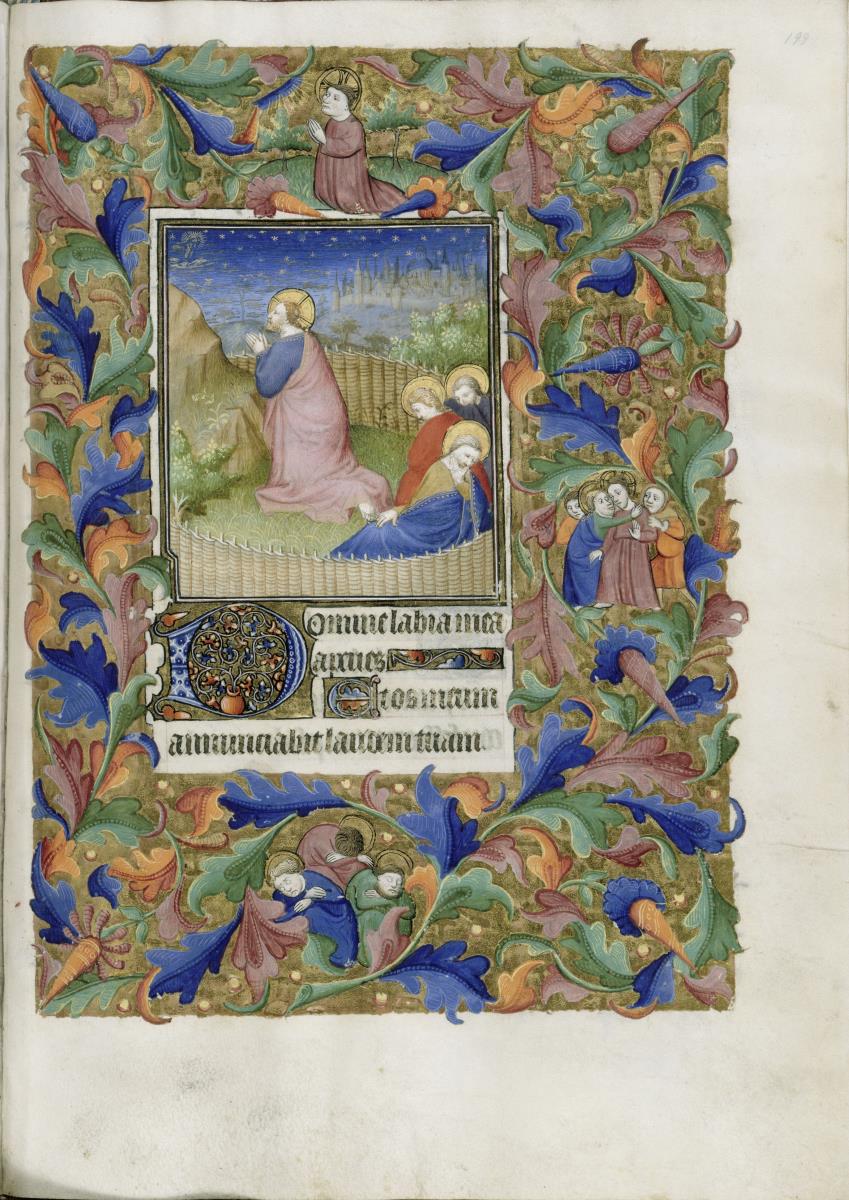 199
Domine labia mea
aperies
Et os meum
annunciabit laudem tuam.